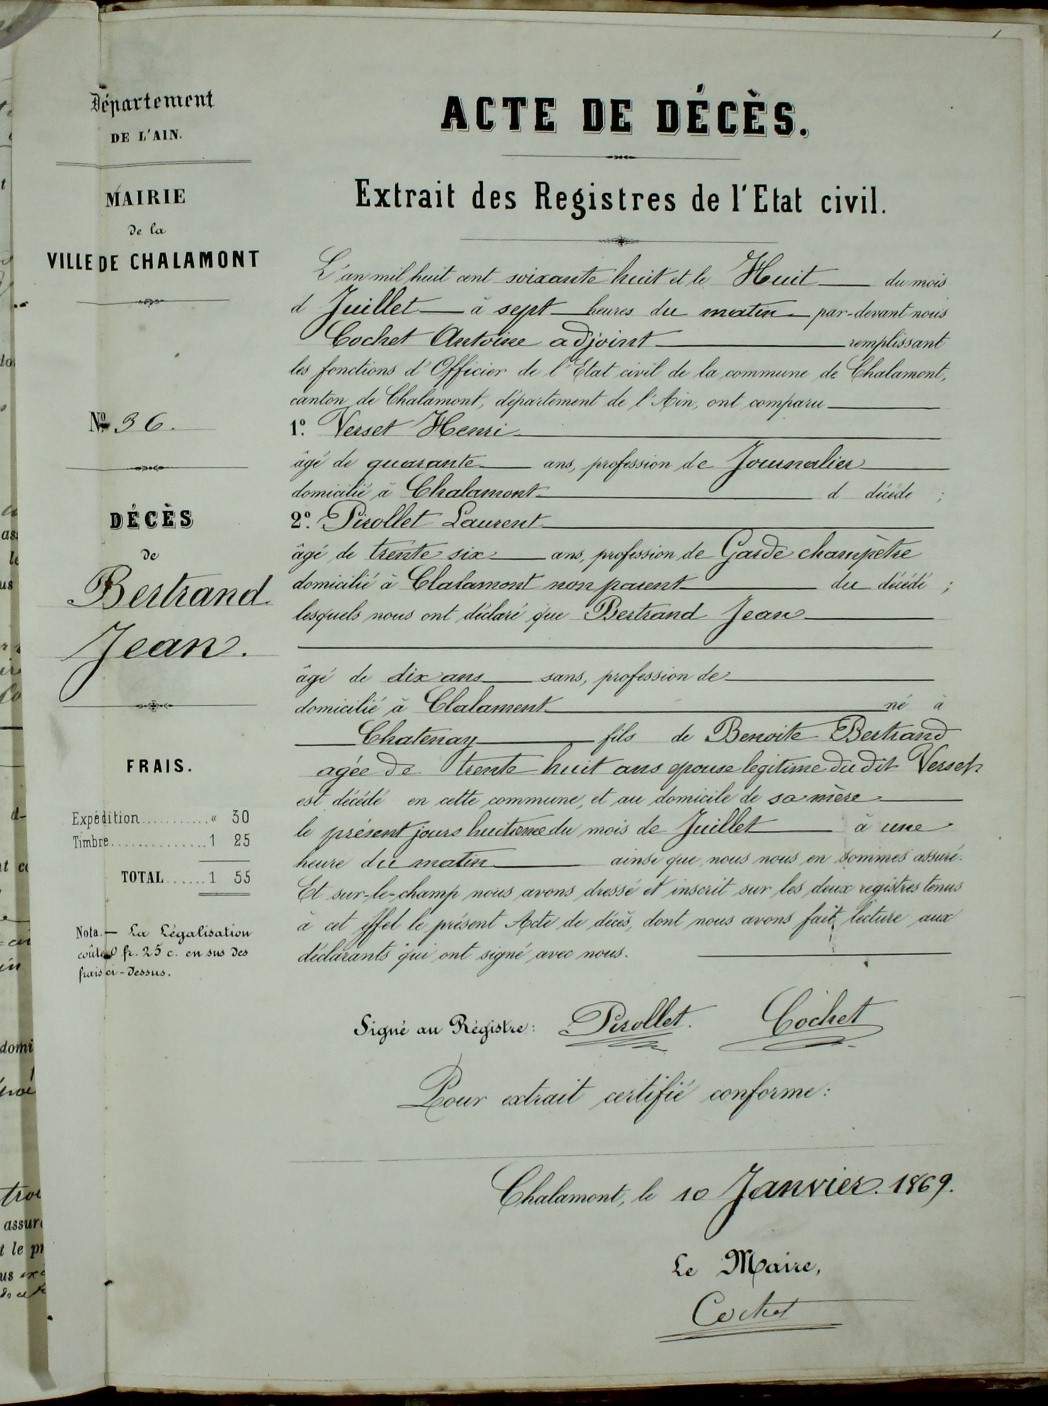 Département
DE L'AIN.
MAIRIE
de la
VILLE DE CHALAMONT
Nº 36.
DÉCÈS
de
Bertrand
Jean.
FRAIS.
Expédition........... « 30
Timbre............... 1 25
TOTAL...... 1 55
Nota.— La Légalisation
coûte 0 fr. 25 c. en sus des
frais ci-dessus.
ACTE DE DÉCÈS.
Extrait des Registres de l'Etat civil.
L'an mil huit cent soixante huit et le Huit du mois
d Juillet à sept heures du matin par-devant nous
Cochet Antoine adjoint remplissant
les fonctions d'Officier de l'Etat civil de la commune de Chalamont,
canton de Chalamont, département de l'Ain, ont comparu
1º. Verset Henri
âgé de quarante ans, profession de Journalier
domicilié à Chalamont d décédé ;
2º. Pirollet Laurent
âgé de trente six ans, profession de Garde champêtre
domicilié à Chalamont non parent du décédé ;
lesquels nous ont déclaré que Bertrand Jean
âgé de dix ans sans, profession de
domicilié à Chalamont né à
Chatenay fils de Benoite Bertrand
agée de trente huit ans epouse legitime du dit Verset
est décédé en cette commune, et au domicile de sa mère
le présent jours huitieme du mois de Juillet à une
heure du matin ainsi que nous nous en sommes assuré.
Et sur-le-champ nous avons dressé et inscrit sur les deux registres tenus
à cet effet le présent Acte de décès, dont nous avons fait lecture aux
déclarants qui ont signé avec nous.
Signé au Régistre: Pirollet. Cochet
Pour extrait certifié conforme:
Chalamont, le 10 Janvier. 1869.
Le Maire,
Cochet